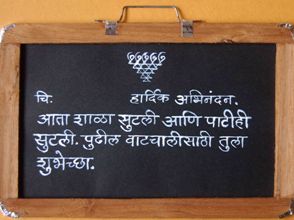 चि. हार्दिक अभिनंदन.
आता शाळा सुटली आणि पाटीही
सुटली. पुढील वाटचालीसाठी तुला
शुभेच्छा.